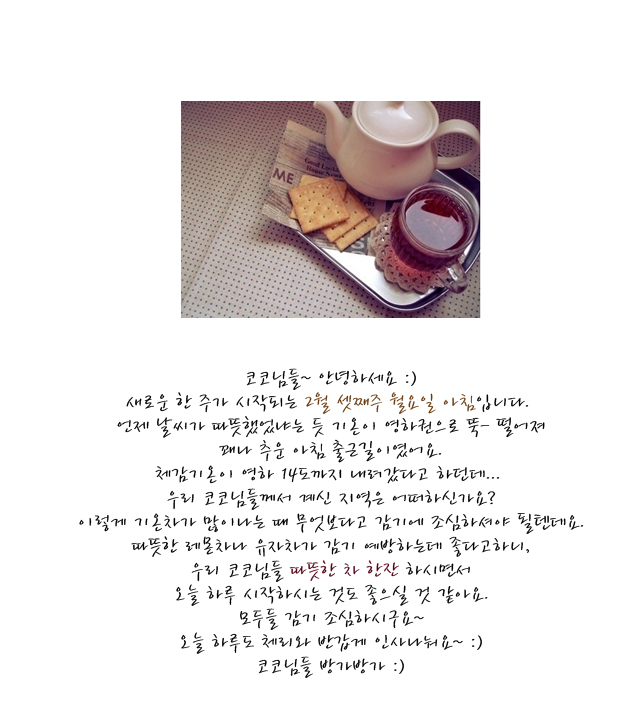 Good Luck
Home Sw
ME
코코님들~ 안녕하세요 :)
새로운 한 주가 시작되는 2월 셋째주 월요일 아침입니다.
언제 날씨가 따뜻했었냐는 듯 기온이 영하권으로 뚝- 떨어져
꽤나 추운 아침 출근길이였어요.
체감기온이 영하 14도까지 내려갔다고 하던데...
우리 코코님들께서 계신 지역은 어떠하신가요?
이렇게 기온차가 많이나는 때 무엇보다고 감기에 조심하셔야 될텐데요.
따뜻한 레몬차나 유자차가 감기 예방하는데 좋다고하니,
우리 코코님들 따뜻한 차 한잔 하시면서
오늘 하루 시작하시는 것도 좋으실 것 같아요.
모두들 감기 조심하시구요~
오늘 하루도 체리와 반갑게 인사나눠요~ :)
코코님들 방가방가 :)